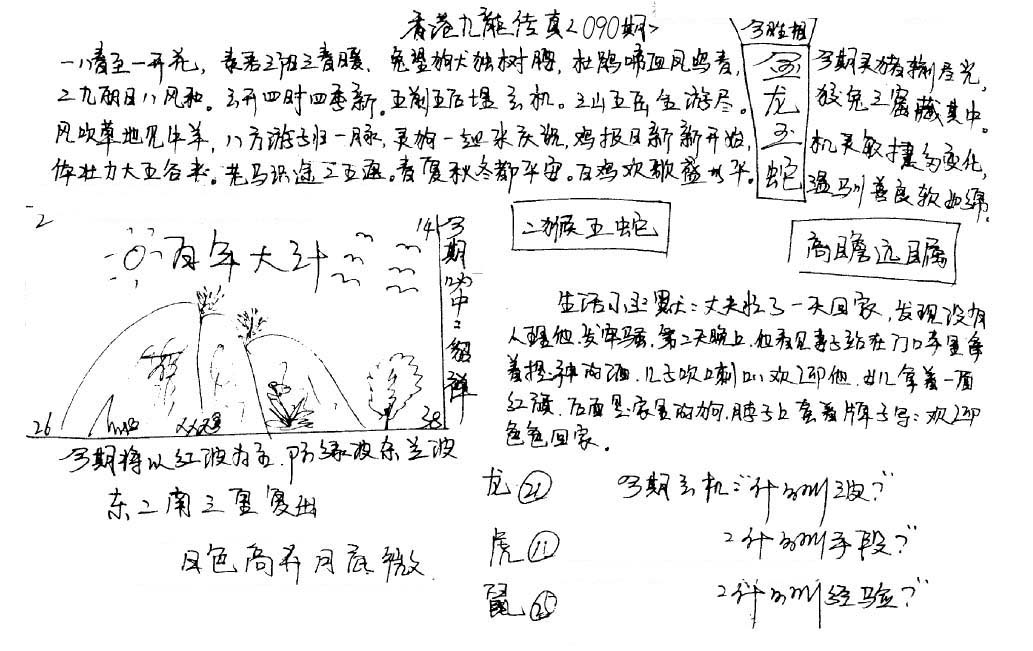 香港九龍传真<090期>
一八春至一开花，春君三组三春暖、兔望狗犬独树腰，杜鹃啼血风鸣春，
二九朔日八风和。玄开四时四季新。五前五后埋玄机。三山五岳全游尽。
风吹草地见牛羊，八方游子归一脉，灵狗一起来庆祝，鸡报日新新开始，
体壮力大五谷来。老马识途三五遍。春夏秋冬都平安。百鸡欢歌盛太平。
今期相
金龙玉蛇
今期灵猪输尽光，
狡兔三窟藏其中。
机灵敏捷多变化，
温驯善良软如绵。
2
14
百年大计
26
38
今期必中二组群
二猴五蛇
高瞻远瞩
生活小幽默：丈夫忙了一天回家，发现没有
人理他，发牢骚，第二天晚上，他看见妻子站在门口手里拿
着提神的酒，儿子吹喇叭欢迎他，女儿拿着一面
红旗，后面是家里的狗，脖子上套着牌子写：欢迎
色色回家。
今期将以红波为主，防绿波杀兰波
东二南三里复出
日色高升月底微
龙 21
虎 11
鼠
今期玄机："什么叫 ?"
"什么叫手段?"
"什么叫经验?"